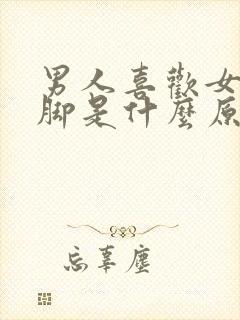 男人喜歡女
脚是什麼原
忘辜塵